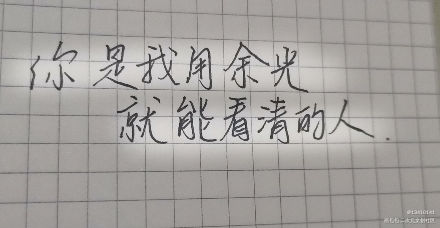 你是我用余光
就能看清的人.